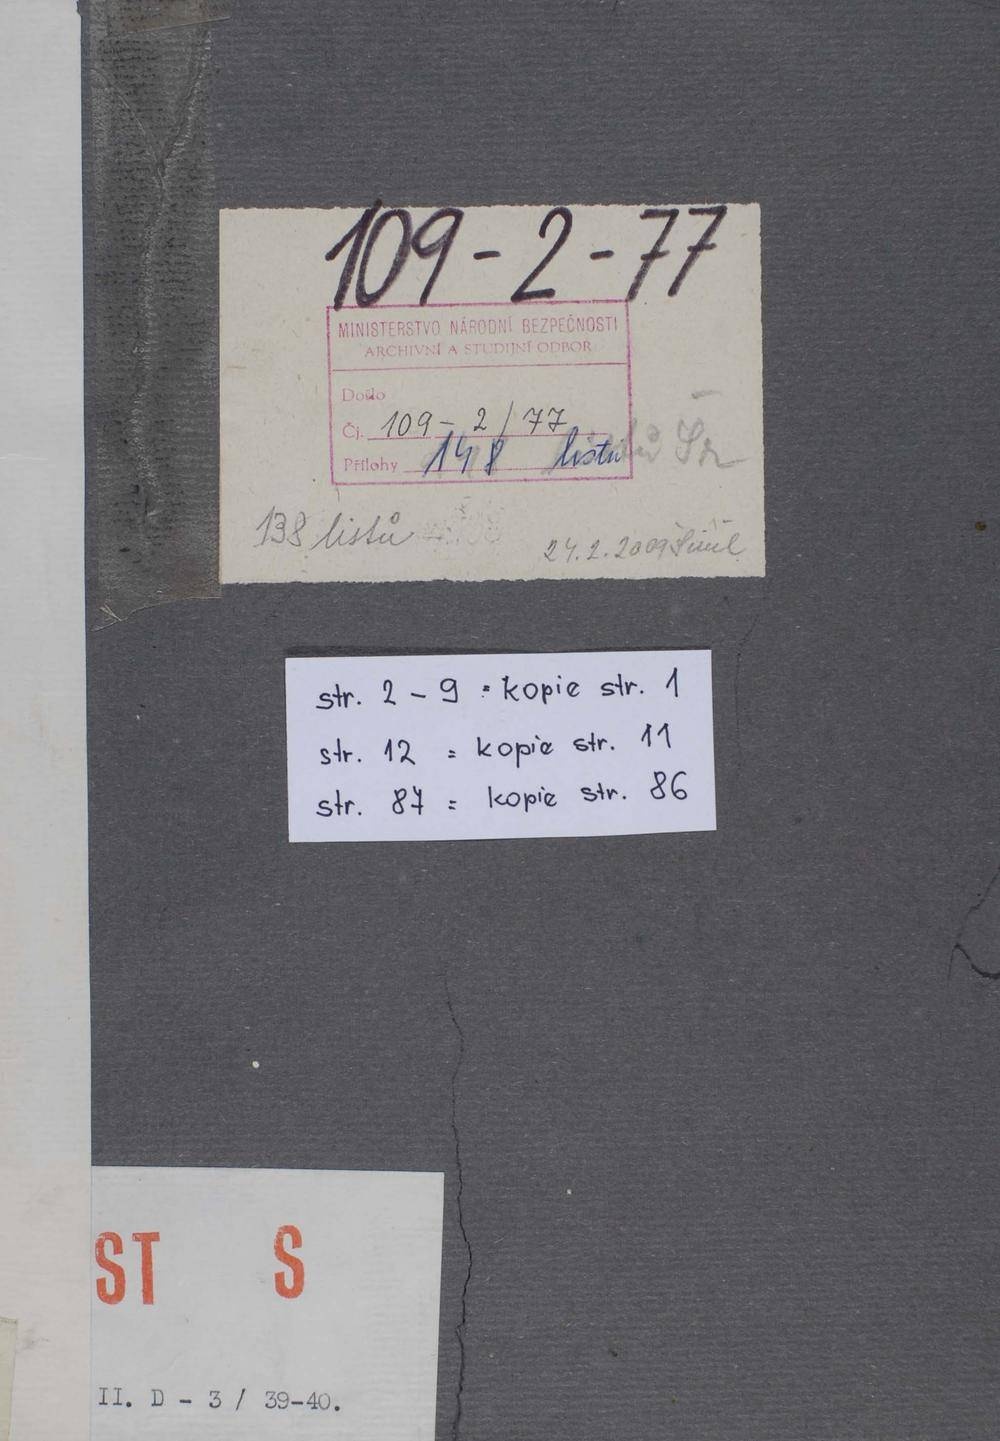 109-2-77
MINISTERSTVO NÁRODNÍ BEZPEČNOSTI
ARCHIVNÍ A STUDIJNÍ ODBOR
Došlo
Čj. 109-2/77
Přílohy 148 listů
138 listů
24.2.2009
str. 2 - 9 = kopie str. 1
str. 12 = kopie str. 11
str. 87 = kopie str. 86
ST S
II. D - 3 / 39-40.